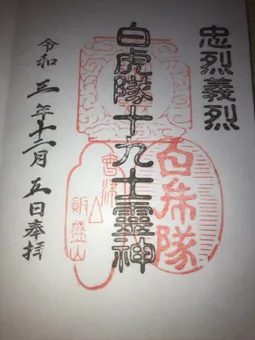 忠烈義烈
白虎隊十九士霊神
白虎隊
會津
飯盛山
令和三年十二月五日奉拝